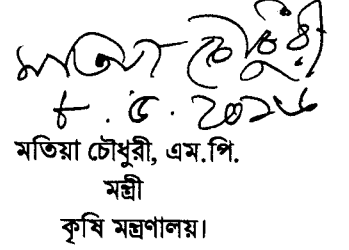 মতিয়া চৌধুরী
৮.৫.২০১৬
মতিয়া চৌধুরী, এম.পি.
মন্ত্রী
কৃষি মন্ত্রণালয়।